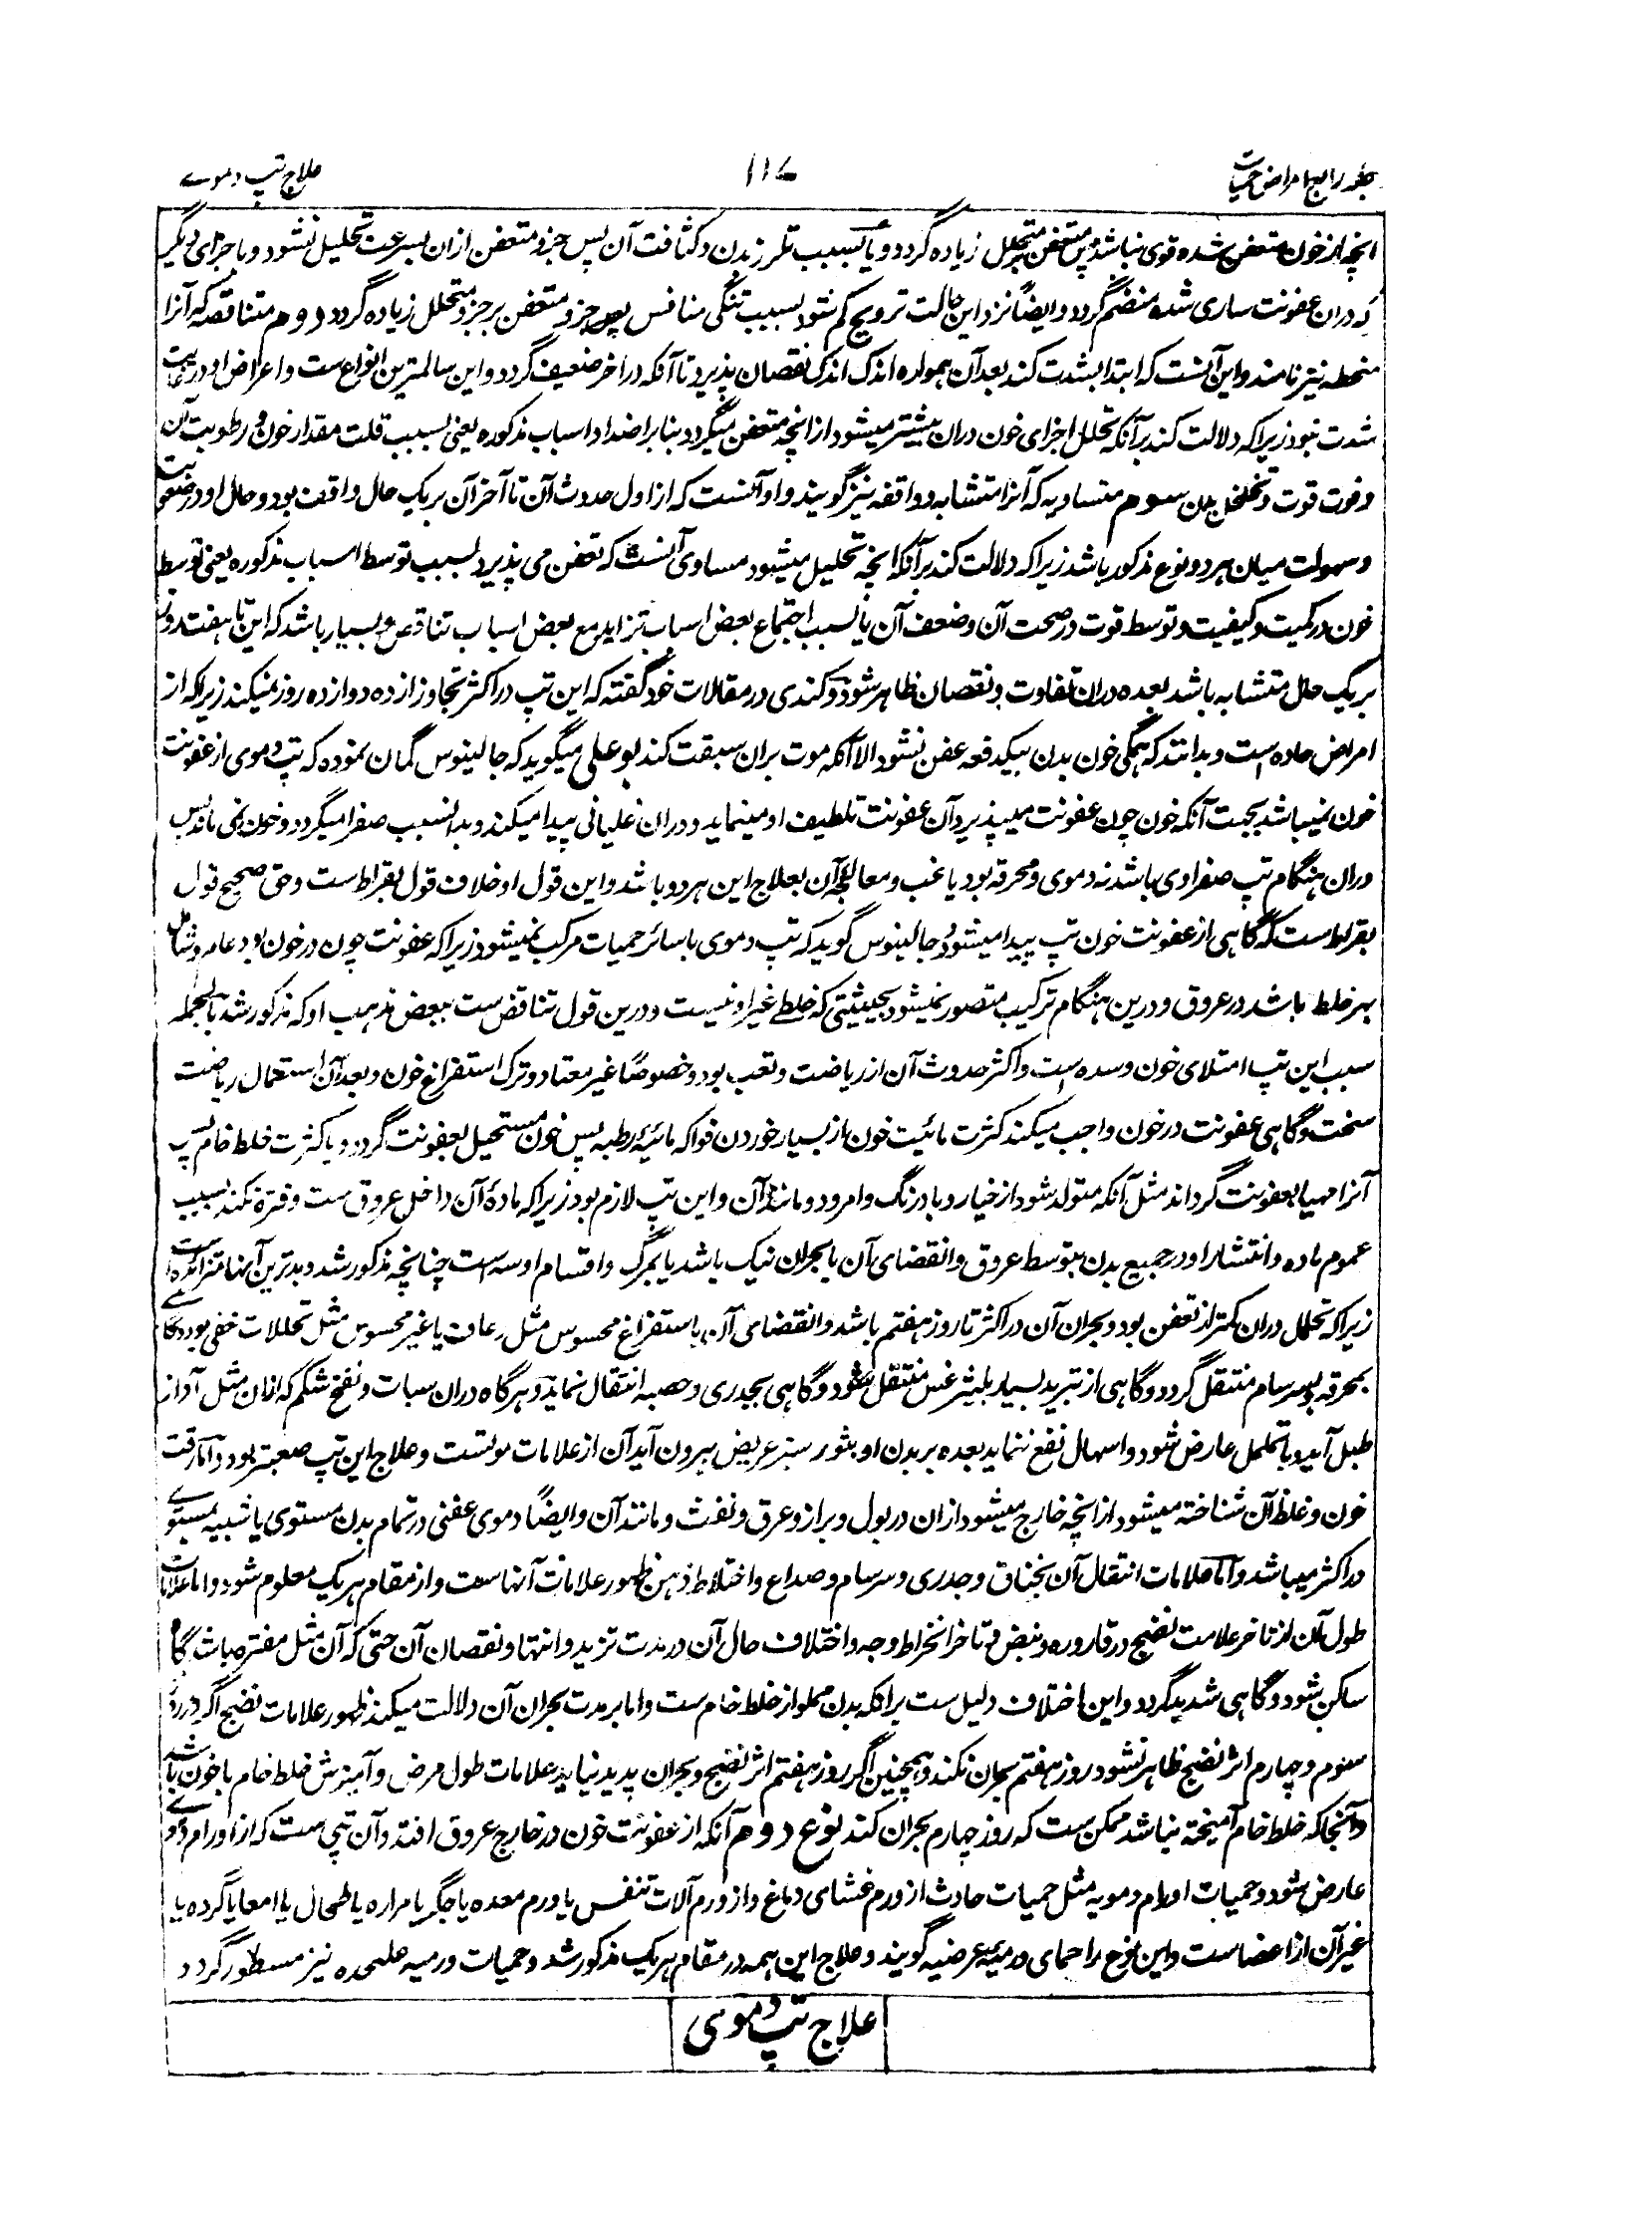 جلد رابع امراض حمیات
۱۱۷
علاج تپ دموے
انچه از خون متعفن شده قوی نباشد پس متعفن بر متحلل زیاده گردد و یا بسبب تلزز بدن و کثافت آن پس جزو متعفن ازان بسرعت تحلیل نشود و با جزای دیگر
که دران عفونت ساری شده منضم گردد و ایضاً نزد این حالت ترویح کم شود بسبب تنگی منافس پس جزو متعفن بر جزو متحلل زیاده گردد دوم متناقصه که آنرا
منحطه نیز نامند و این آنست که ابتدا بشدت کند بعد آن همواره اندک اندک نقصان پذیرد تا آنکه در آخر ضعیف گردد و این سالمترین انواع ست و اعراض او در غایت
شدت نبود زیرا که دلالت کند برآنکه تحلل اجزای خون دران بیشتر میشود از انچه متعفن میگردد بنابر اضداد اسباب مذکوره یعنی بسبب قلت مقدار خون و رطوبت آن
و قوت قوت و تخلخل بدن سوم متساویه که آنرا متشابه و واقفه نیز گویند و او آنست که از اول حدوث آن تا آخر آن بریک حال واقف بود و حال او در صعوبت
و سهولت میان هر دو نوع مذکور باشد زیرا که دلالت کند برآنکه انچه تحلیل میشود مساوی آنست که تعفن می پذیرد بسبب توسط اسباب مذکوره یعنی توسط
خون در کمیت و کیفیت و توسط قوت در صحت آن و ضعف آن یا بسبب اجتماع بعض اسباب تزاید مع بعض اسباب تناقص و بسیار باشد که این تا هفت روز
بریک حال متشابه باشد بعده دران تفاوت و نقصان ظاهر شود و کندی در مقالات خود گفته که این تپ در اکثر تجاوز از ده دوازده روز نمیکند زیرا که از
امراض حاده است و بدانند که همگی خون بدن بیکدفعه عفن نشود الا آنکه موت بران سبقت کند بوعلی میگوید که جالینوس گمان نموده که تپ دموی از عفونت
خون نمیباشد بجهت آنکه خون چون عفونت میپذیرد آن عفونت تلطیف او مینماید و دران غلیانی پیدا میکند و بدانسبب صفرا میگردد و خون نمی ماند پس
دران هنگام تپ صفراوی باشد نه دموی و محرقه بود یا غب و معالجه آن بعلاج این هر دو باشد و این قول او خلاف قول بقراط ست و حق صحیح قول
بقراط است که گاهی از عفونت خون تپ پیدا میشود و جالینوس گوید که تپ دموی با سائر حمیات مرکب نمیشود زیرا که عفونت چون در خون بود عام و شامل
بهر خلط باشد در عروق و درین هنگام ترکیب متصور نمیشود بحیثیتی که خلطے غیر او نیست و درین قول تناقض ست ببعض مذهب او که مذکور شد بالجمله
سبب این تپ امتلای خون و سده است و اکثر حدوث آن از ریاضت و تعب بود و خصوصاً غیر معتاد و ترک استفراغ خون و بعد آن استعمال ریاضت
سخت و گاهی عفونت در خون واجب میکند کثرت مائیت خون از بسیار خوردن فواکه مائیه رطبه پس خون مستحیل بعفونت گردد و یا کثرت خلط خام پس
آنرا مهیا بعفونت گرداند مثل آنکه متولد شود از خیار و بادرنگ و امرود و مانند آن و این تپ لازم بود زیرا که ماده آن داخل عروق ست و فتره نکند بسبب
عموم ماده و انتشار او در جمیع بدن بتوسط عروق و انقضای آن یا بحران نیک باشد یا بمرگ و اقسام او سه است چنانچه مذکور شد و بدترین آنها متزائده است
زیرا که تحلل دران کمتر از تعفن بود و بحران آن در اکثر تا روز هفتم باشد و انقضای آن باستفراغ محسوس مثل رعاف یا غیر محسوس مثل تحللات خفی بود و گاهے
بمحرقه و بسرسام منتقل گردد و گاهی از تبرید بسیار بلیثرغس منتقل شود و گاهی بجدری و حصبه انتقال نماید و هرگاه دران سبات و نفخ شکم که ازان مثل آواز
طبل آید و با تململ عارض شود و اسهال نفع ننماید بعده بر بدن او بثور سبز عریض بیرون آید آن از علامات موتست و علاج این تپ صعبتر بود و اما رقت
خون و غلظ آن شناخته میشود از انچه خارج میشود ازان در بول و براز و عرق و نفث و مانند آن و ایضاً دموی عفنی در تمام بدن مستوی یا شبیه بمستوے
در اکثر میباشد و اما علامات انتقال آن بخناق و جدری و سرسام و صداع و اختلاط ذهن ظهور علامات آنهاست و از مقام هر یک معلوم شود و اما علامات
طول آن از تاخر علامت نضج در قاروره و نبض و تاخر انخراط وجه و اختلاف حال آن در مدت تزید و انتها و نقصان آن حتی که آن مثل مفتره باشد گاه
ساکن شود و گاهی شدید گردد و این اختلاف دلیل ست برآنکه بدن مملو از خلط خام ست و اما بر مدت بحران آن دلالت میکند ظهور علامات نضج اگر در روز
سوم و چهارم اثر نضج ظاهر نشود روز هفتم بحران نکند و همچنین اگر روز هفتم اثر نضج و بحران پدید نیاید علامات طول مرض و آمیزش خلط خام با خون باشد
و آنجا که خلط خام آمیخته نباشد ممکن ست که روز چهارم بحران کند نوع دوم آنکه از عفونت خون در خارج عروق افتد و آن تپی ست که از اورام دموے
عارض شود و حمیات اورام دمویه مثل حمیات حادث از ورم غشای دماغ و از ورم آلات تنفس یا ورم معده یا جگر یا مراره یا طحال یا امعا یا گرده یا
غیر آن از اعضاست و این نوع را حمای ورمیه عرضیه گویند و علاج این همه در مقام هر یک مذکور شد و حمیات ورمیه علیحده نیز مسطور گردد
علاج تپ دموی